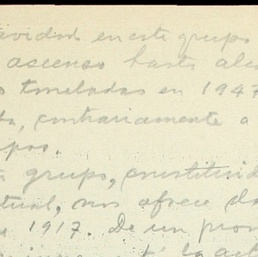 tividad en este grupo
ascenso hasta alca
s toneladas en 1947
da, contrariamente a
upos.
grupo, constituid
tual, nos ofrece da
1917. De un prom